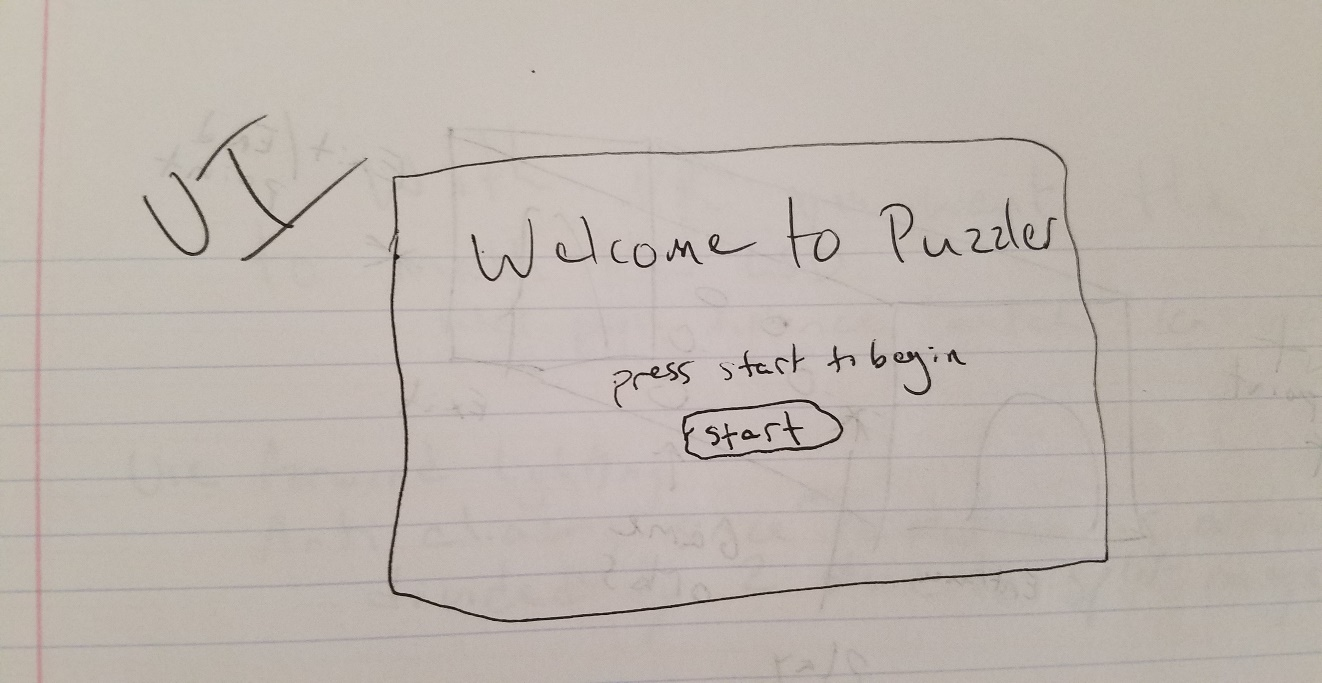 UI
Welcome to Puzzler
press start to begin
start